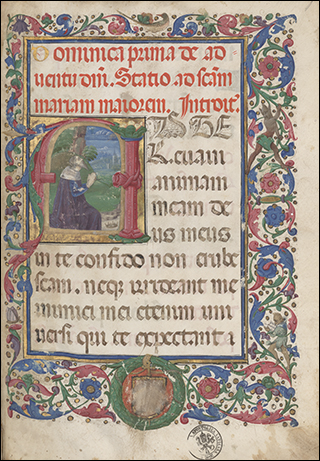 Dominica prima de ad
ventu dni. Statio ad scam
mariam maiorem. Introit
AD TE
levavi
animam
meam de
us meus
in te confido non erube
scam. neq irrideant me
inimici mei etenim uni
versi qui te expectant